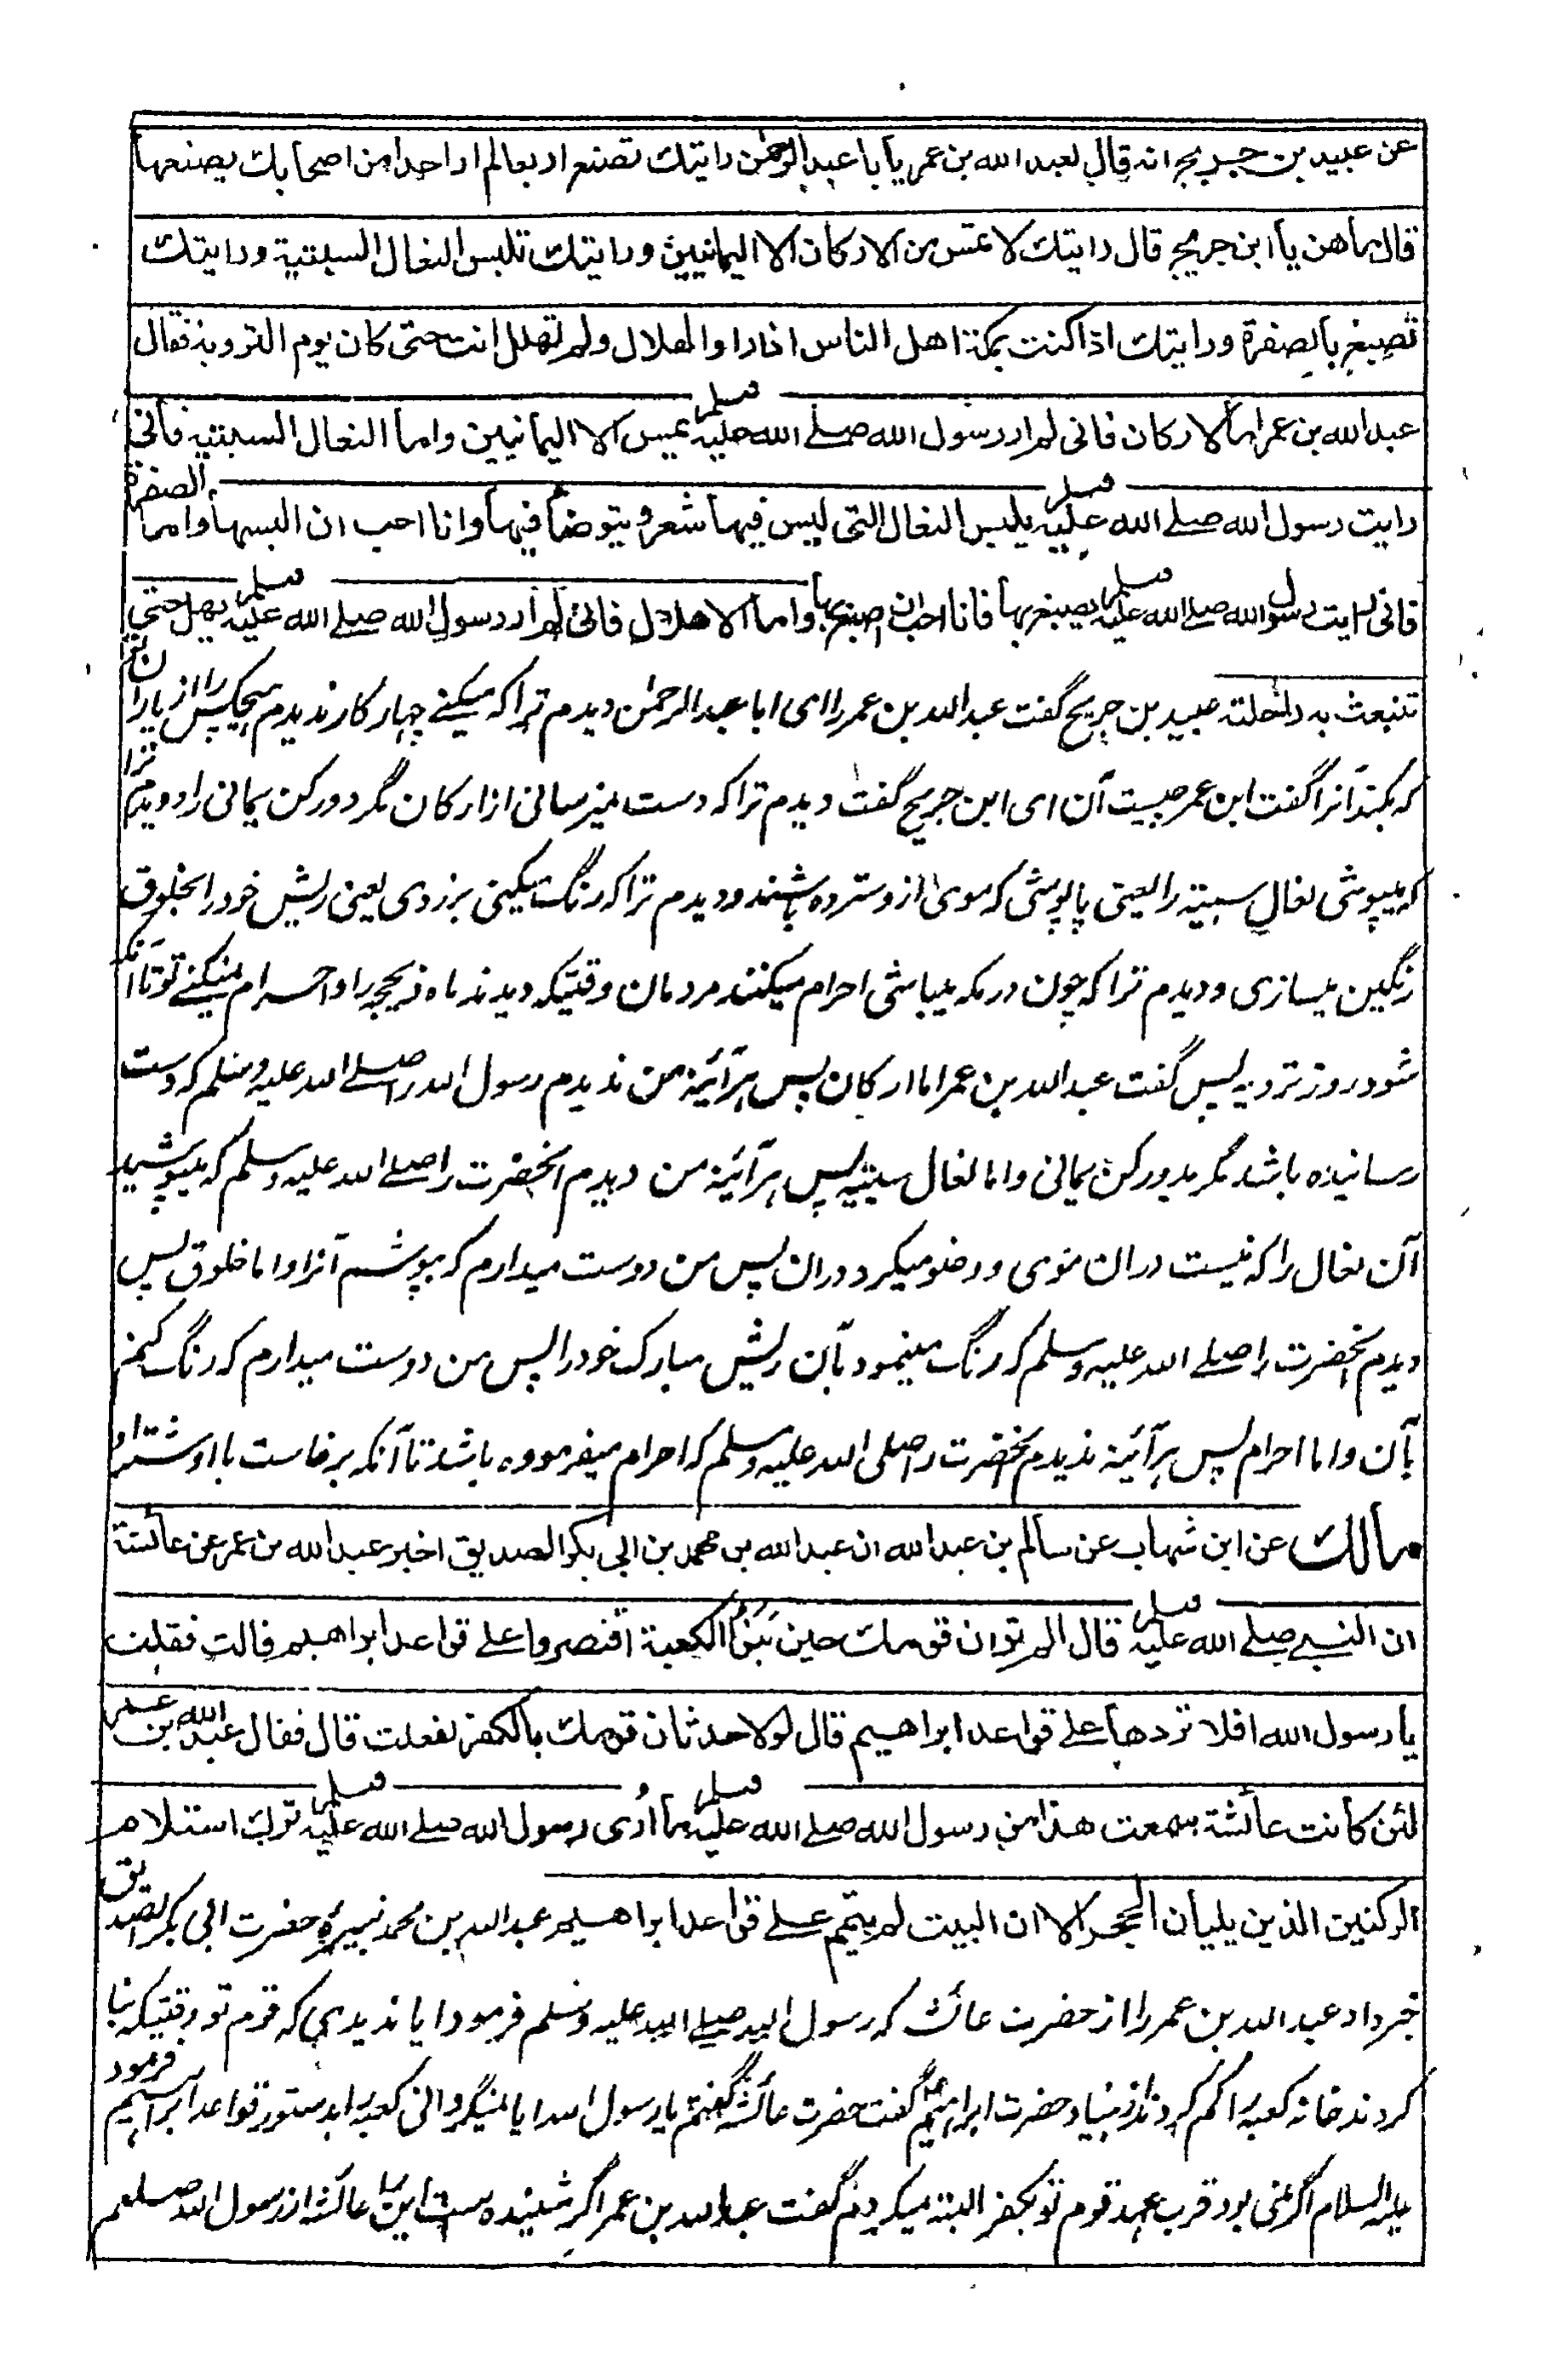 عن عبيد بن جريج انه قال لعبد الله بن عمر يا با عبد الرحمن رايتك تصنع اربعا لم ار احدا من اصحابك يصنعها
قال ما هن يا ابن جريج قال رايتك لا تمس من الاركان الا اليمانيين ورايتك تلبس النعال السبتية ورايتك
تصبغ بالصفرة ورايتك اذا كنت بمكة اهل الناس اذا راوا الهلال ولم تهلل انت حتى كان يوم التروية فقال
عبد الله بن عمر اما الاركان فانى لم ار رسول الله صلے الله عليه وسلم يمس الا اليمانيين واما النعال السبتية فانى
رايت رسول الله صلے الله عليه وسلم يلبس النعال التى ليس فيها شعر ويتوضأ فيها وانا احب ان البسها واما الصفرة
فانى رايت رسول الله صلے الله عليه وسلم يصبغ بها فانا احب ان اصبغ بها واما الاهلال فانى لم ار رسول الله صلے الله عليه وسلم يهل حتى
تنبعث به راحلته عبيد بن جريج گفت عبد الله بن عمر را اى ابا عبد الرحمن ديدم ترا كه ميكنے چهار كار نديدم هيچكس را از ياران تو
كه بكند آنرا گفت ابن عمر چيست آن اى ابن جريج گفت ديدم ترا كه دست نميرسانى از اركان مگر دو ركن يمانى را و ديدم ترا
كه ميپوشى نعال سبتيه را يعنى پاپوشى كه موى از و سترده باشند و ديدم ترا كه رنگ ميكنى بزردى يعنى ريش خود را بخلوق
رنگين ميسازى و ديدم ترا كه چون در مكه ميباشى احرام ميكنند مردمان وقتيكه ديدند ماه ذيحجه را و احرام نميكنے تو تا آنكه
شود روز ترويه پس گفت عبد الله بن عمر اما اركان پس هر آئينه من نديدم رسول الله را صلے الله عليه وسلم كه دست
رسانيده باشد مگر بدو ركن يمانى و اما نعال سبتيه پس هر آئينه من ديدم آنحضرت را صلے الله عليه وسلم كه ميپوشيد
آن نعال را كه نيست در ان موى و وضو ميكرد در ان پس من دوست ميدارم كه بپوشم آنرا و اما خلوق پس
ديدم آنحضرت را صلے الله عليه وسلم كه رنگ مينمود بآن ريش مبارك خود را پس من دوست ميدارم كه رنگ كنم
بآن و اما احرام پس هر آئينه نديدم آنحضرت را صلى الله عليه وسلم كه احرام ميفرموده باشد تا آنكه برخاست با او شتر او
مالك عن ابن شهاب عن سالم بن عبد الله ان عبد الله بن محمد بن ابى بكر الصديق اخبر عبد الله بن عمر عن عائشة
ان النبي صلے الله عليه وسلم قال الم تران قومك حين بنوا الكعبة اقتصروا على قواعد ابراهيم قالت فقلت
يا رسول الله افلا تردها على قواعد ابراهيم قال لولا حدثان قومك بالكفر لفعلت قال فقال عبد الله بن عمر
لئن كانت عائشة سمعت هذا من رسول الله صلے الله عليه وسلم ما أرى رسول الله صلے الله عليه وسلم ترك استلام
الركنين الذين يليان الحجر الا ان البيت لم يتمم على قواعد ابراهيم عبد الله بن محمد نبيرهٔ حضرت ابى بكر الصديق
خبر داد عبد الله بن عمر را از حضرت عائشه كه رسول الله صلے الله عليه وسلم فرمود ايا نديدى كه قوم تو وقتيكه بنا
كردند خانه كعبه را كم كردند از بنياد حضرت ابراهيم گفت حضرت عائشه گفتم يا رسول الله ايا نميگردانى كعبه را بدستور قواعد ابراهيم فرمود
عليه السلام اگر نمى بود قرب عهد قوم تو بكفر البته ميكردم گفت عبد الله بن عمر اگر شنيده ست اين را عائشه از رسول الله صلعم